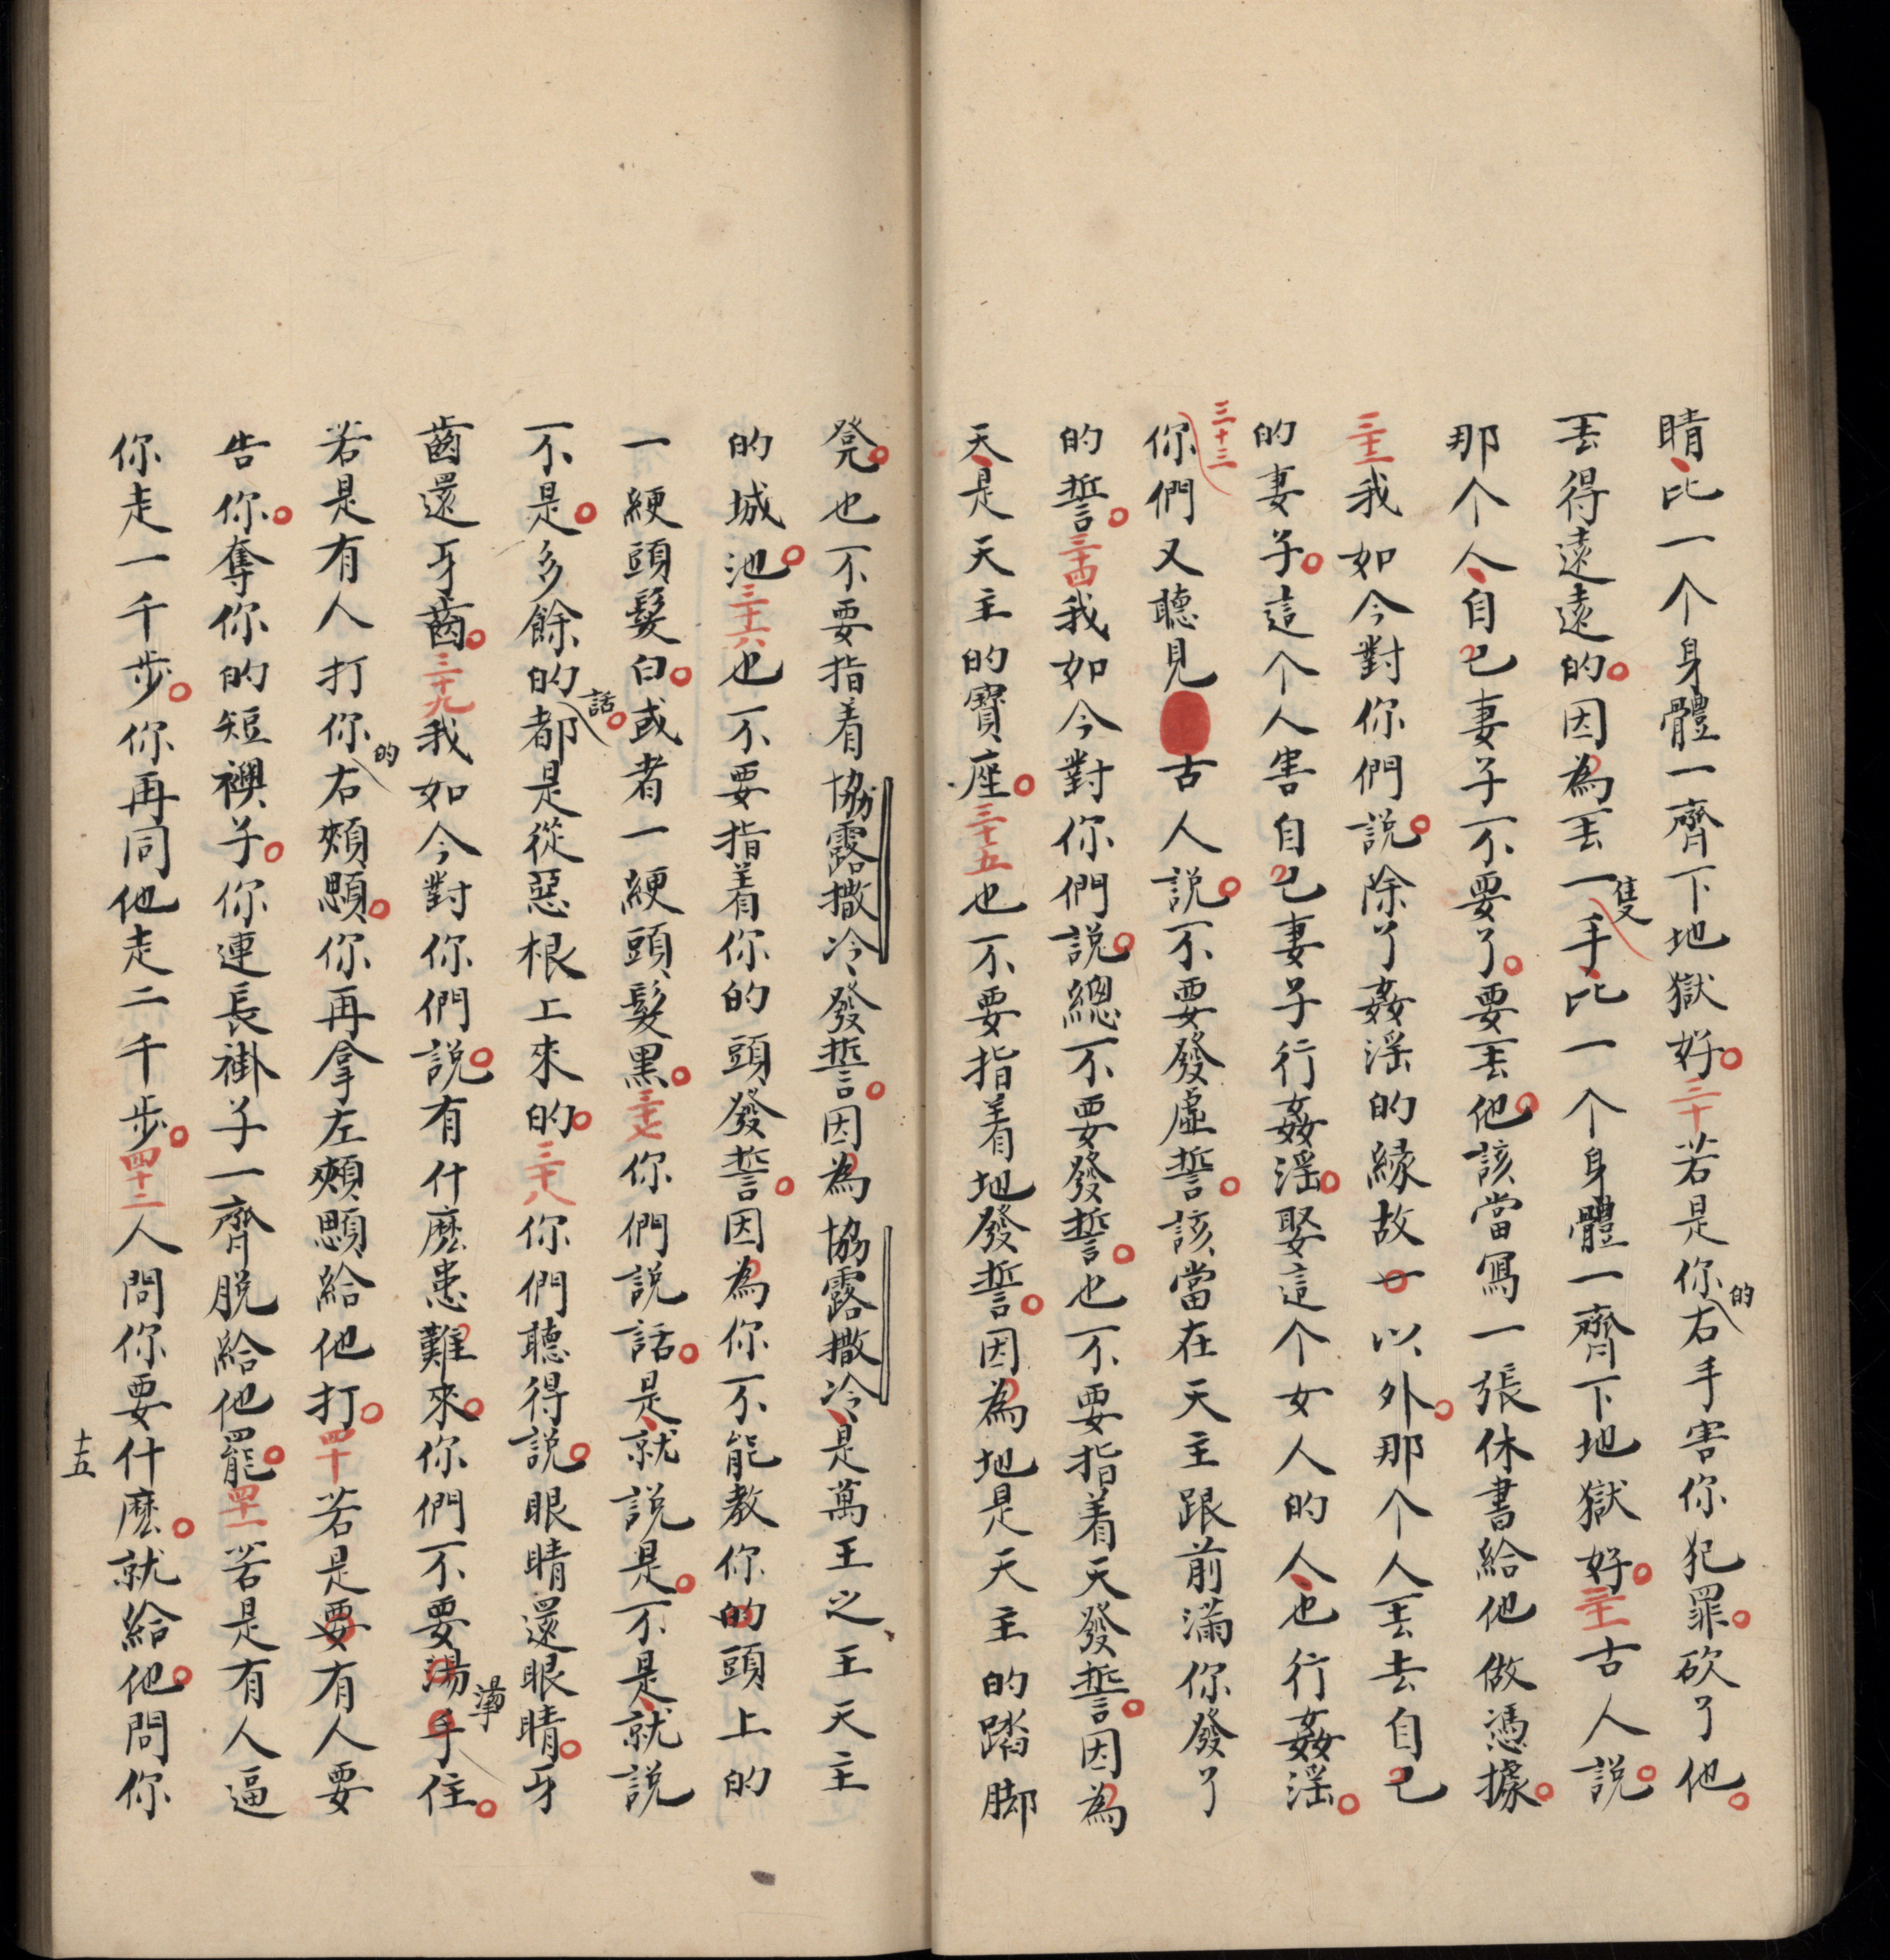 睛比一个身體一齊下地獄好。三十若是你的右手害你犯罪。砍了他。
丟得遠遠的。因為丟一隻手比一个身體一齊下地獄好。三十一古人說。
那个人自己妻子不要了。要丟他。該當寫一張休書給他做憑據。
三十二我如今對你們說。除了姦淫的緣故一以外。那个人丟去自己
的妻子。這个人害自己妻子行姦淫。娶這个女人的人也行姦淫。
三十三你們又聽見古人說。不要發虛誓。該當在天主跟前滿你發了
的誓。三十四我如今對你們說。總不要發誓。也不要指着天發誓。因為
天是天主的寶座。三十五也不要指着地發誓。因為地是天主的踏脚
凳。也不要指着協露撒冷發誓。因為協露撒冷是萬王之王天主
的城池。三十六也不要指着你的頭發誓。因為你不能教你的頭上的
一綆頭髮白。或者一綆頭髮黑。三十七你們說話。是就說是。不是就說
不是。多餘的話。都是從惡根上來的。三十八你們聽得說。眼睛還眼睛。牙
齒還牙齒。三十九我如今對你們說。有什麽患難來。你們不要湯手住。
若是有人打你的右頰顋。你再拿左頰顋給他打。四十若是要有人要
告你。奪你的短襖子。你連長褂子一齊脱給他罷。四十一若是有人逼
你走一千步。你再同他走二千步。四十二人問你要什麽。就給他。問你
十五